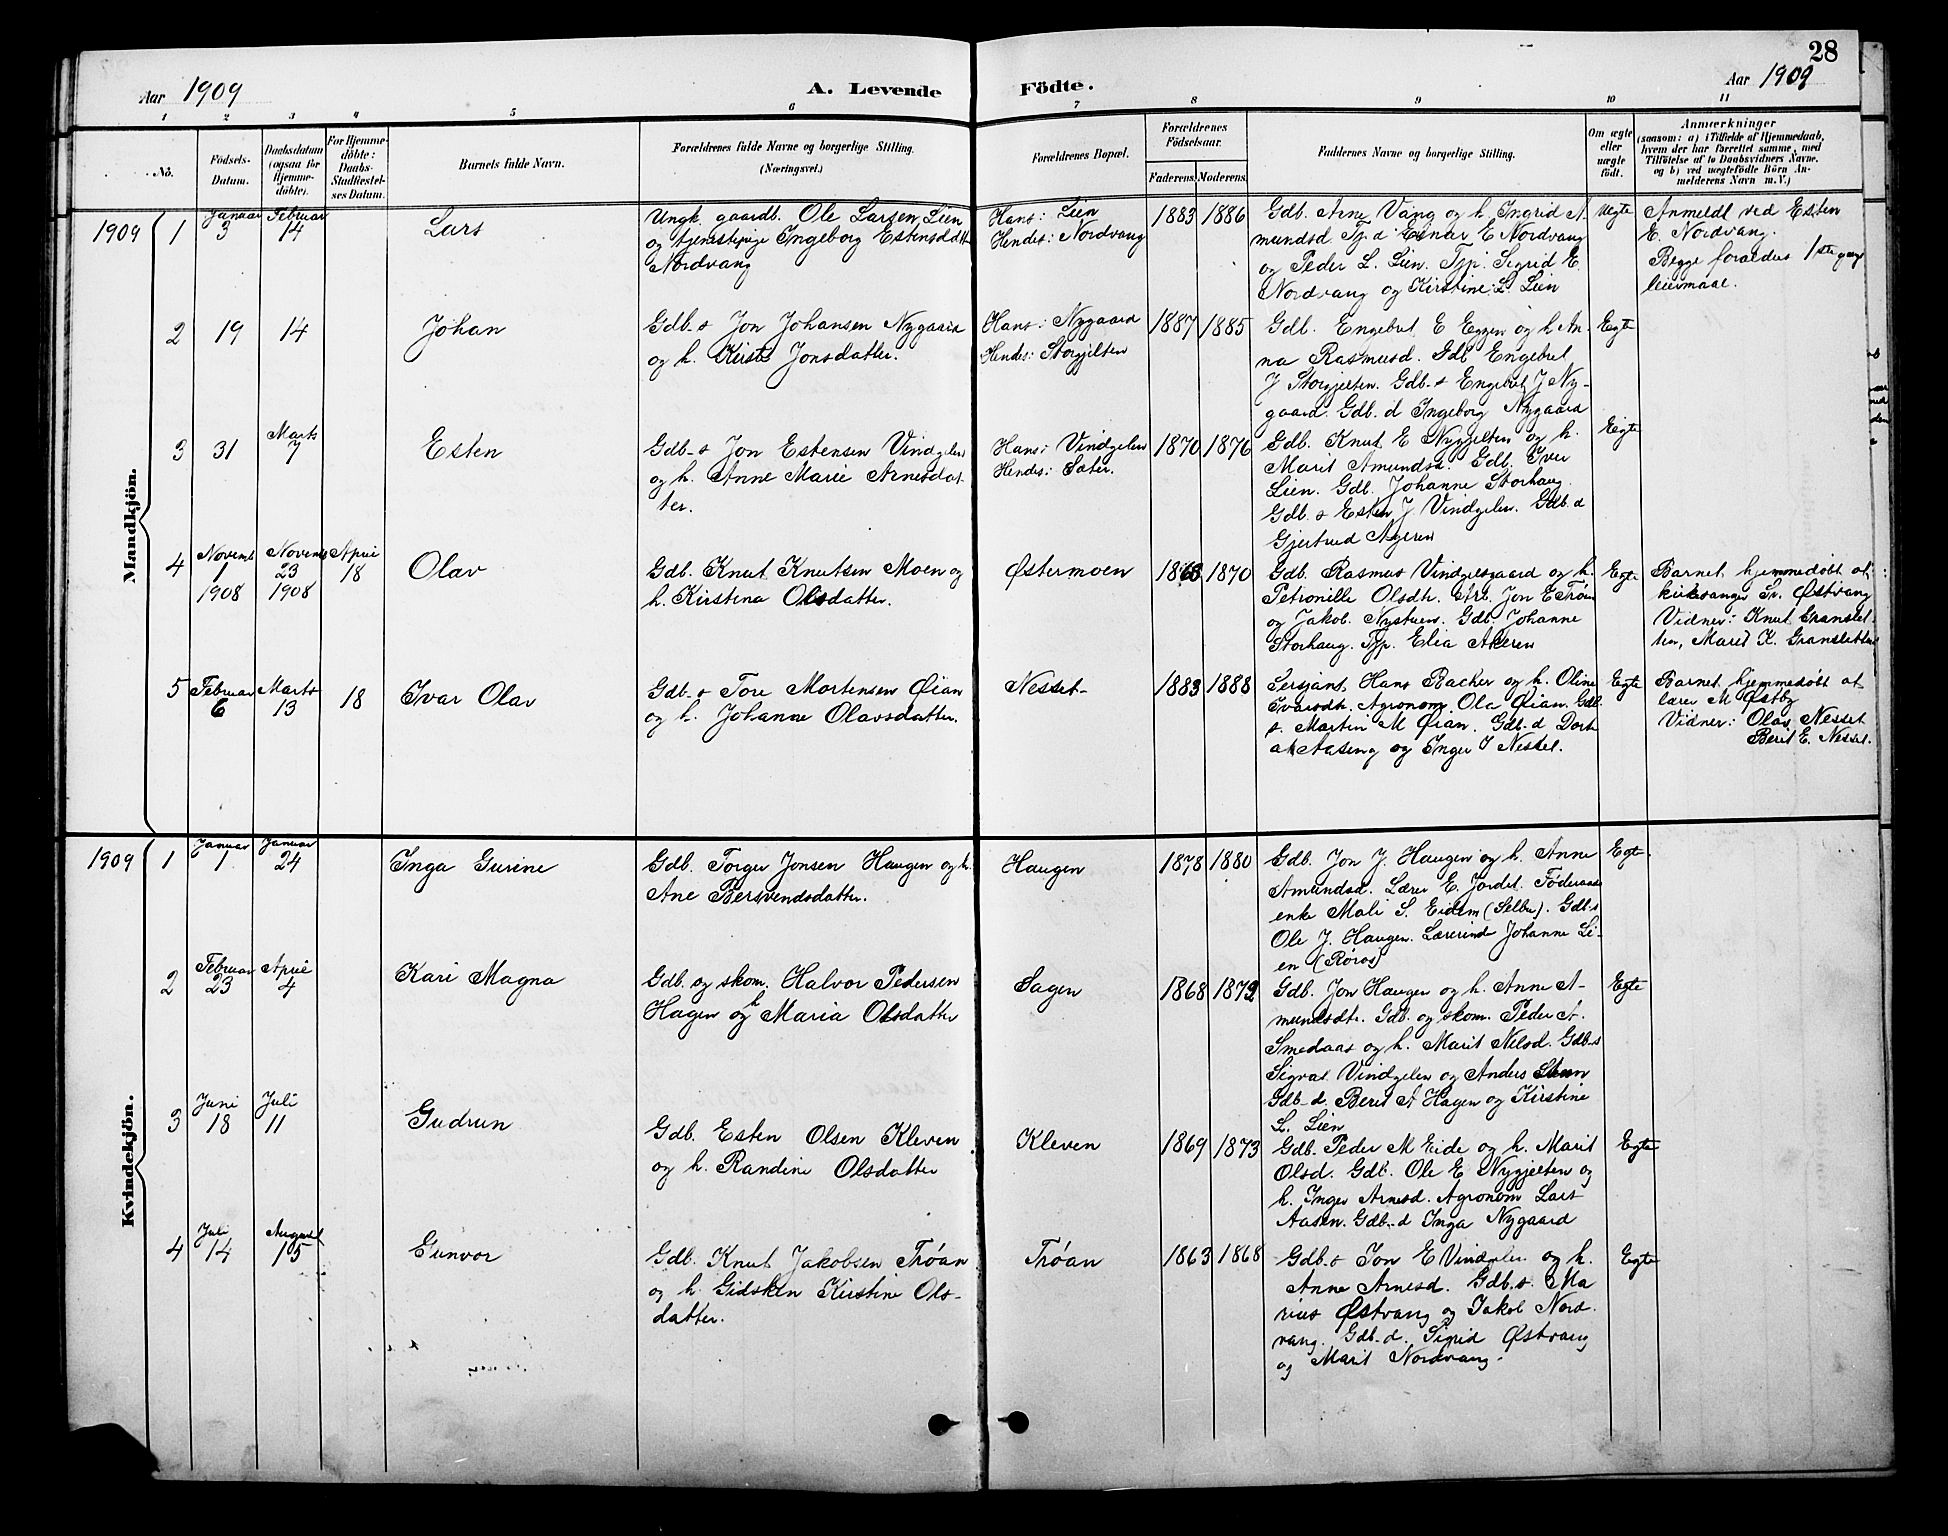 28
Aar 1909
A. Levende
Födte.
Aar 1909
1 2 3 4 5 6 7 8 9 10 11
No.
Födsels-
Datum.
Daabsdatum
(ogsaa for
Hjemme-
döbte).
For Hjemme-
döbte:
Daabs-
Stadfæstel-
ses Datum.
Barnets fulde Navn.
Forældrenes fulde Navne og borgerlige Stilling.
(Næringsvei.)
Forældrenes Bopæl.
Forældrenes
Födselsaar.
Faderens. Moderens.
Faddernes Navne og borgerlige Stilling.
Om ægte
eller
uægte
födt.
Anmærkninger
(saasom: a) i Tilfælde af Hjemmedaab,
hvem der har forrettet samme, med
Tilföielse af to Daabsvidners Navne,
og b) ved uægtefödte Börn An-
melderens Navn m. V.)
Mandkjön.
1909
1
Januar
3
Februar
14
Lars
Ungk. gaardb. Ole Larsen Lien
og tjenestepige Ingeborg Estensdatt
Nordvang
Hans: Lien
Hendes: Nordvang
1883 1886
Gdb. Arne Vang og h. Ingrid A
mundsd. Tj. d Esnar E Nordvang
og Peder L. Lien. Tjp. Sigrid E.
Nordvang og Kirstine L. Lien
Uegte
Anmeldt ved Esten
E. Nordvang.
Begge forældres 1ste gang
leiermaal.
2
19
14
Johan
Gdb.s Jon Johansen Nygaard
og h. Kirsti Jonsdatter.
Hans: Nygaard
Hendes: Storgjelten
1887 1885
Gdb. Engebret E Eggen og h An-
na Rasmusd. Gdb Engebret
J Storgjelten. Gdb.s Engebret J Ny-
gaard. Gdb. d Ingeborg Nygaard
Egte
3
31
Marts
7
Esten
Gdb.s Jon Estensen Vindgelen
og h. Anne Marie Arnesdat-
ter.
Hans: Vindgelen
Hendes: Sæter.
1870 1876
Gdb. Knut E Nygjelten og h.
Marit Amundsd. Gdb. Iver
Lien. Gdb. Johanne Storhaug.
Gdb. s Esten J Vindgelen. Gdb. d
Gjertrud
Egte
4
Novemb
1
1908
Novemb
23
1908
April
18
Olav
Gdb. Knut Knutsen Moen og
h. Kirstena Olsdatter.
Østermoen
1868 1870
Gdb. Rasmus Vindgelsgaard og h.
Petronille Olsdtr. Arb. Jon E Trøen
og Jakob Nystuen. Gdb. Johanne
Storhaug. Tjp. Elia Akeren
Egte
Barnet hjemmedøbt at
kirkesanger P. Østvang
Vidner: Knut Granslet-
ten, Marit K. Gransletten
5
Februar
6
Marts
13
18
Ivar Olav
Gdb.s Tore Mortensen Øian
og h. Johanne Olavsdatter.
Nesset
1883 1888
Sersjant Hans Backer og h. Oline
Ivarsdtr. Agronom Ola Øian. Gdb.
s. Martin M Øian. Gdb. d Dort
ea Aaseng og Inger J Nesset.
Egte
Barnet hjemmedøbt at
lærer M Østby
Vidner: Olav Nesset
Berit E. Nesset.
Kvindekjön.
1909
1
Januar
1
Januar
24
Inga Gurine
Gdb. Torger Jonsen Haugen og h.
Ane Bersvendsdatter.
Haugen
1878 1880
Gdb. Jon J. Haugen og h. Anne
Amundsd. Lærer E. Jordet. Føderaads
enke Mali S. Eidem (Selbu). Gdb.s
Ole J. Haugen. Lærerinde Johanne Li-
en (Røros)
Egte.
2
Februar
23
April
4
Kari Magna
Gdb. og skom. Halvor Pedersen
Hagen og h Maria Olsdatter
Sagen
1868 1872
Gdb. Jon Haugen og h. Anne A-
mundsdtr. Gdb. og skom. Peder A.
Smedaas og h. Marit Nilsd. Gdb.s
Sigval Vindgelen og Anders
Gdb.-d. Berit A Hagen og Kirstine
L. Lien
Egte
3
Juni
18
Juli
11
Gudrun
Gdb. Esten Olsen Kleven
og h. Randine Olsdatter
Kleven
1869 1873
Gdb. Peder M Eide og h. Marit
Olsd. Gdb. Ole E Nygjelten og
h. Inger Arnesd. Agronom Lars
Aasen. Gdb.-d Inga Nygaard
Egte
4
Juli
14
August
15
Gunvor
Gdb. Knut Jakobsen Trøan
og h. Gidsken Kirstine Ols-
datter.
Trøan
1863 1868
Gdb.s Jon E Vindgelen og h.
Anne Arnesd. Gdb.s. Ma
rius Østvang og Jakob Nord-
vang. Gdb.-d. Sigrid Østvang
og Marit Nordvang.
Egte